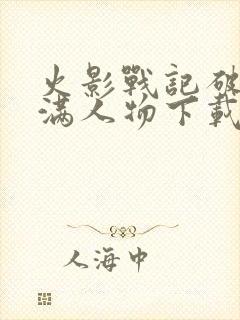 火影戰記破
滿人物下載
人海中